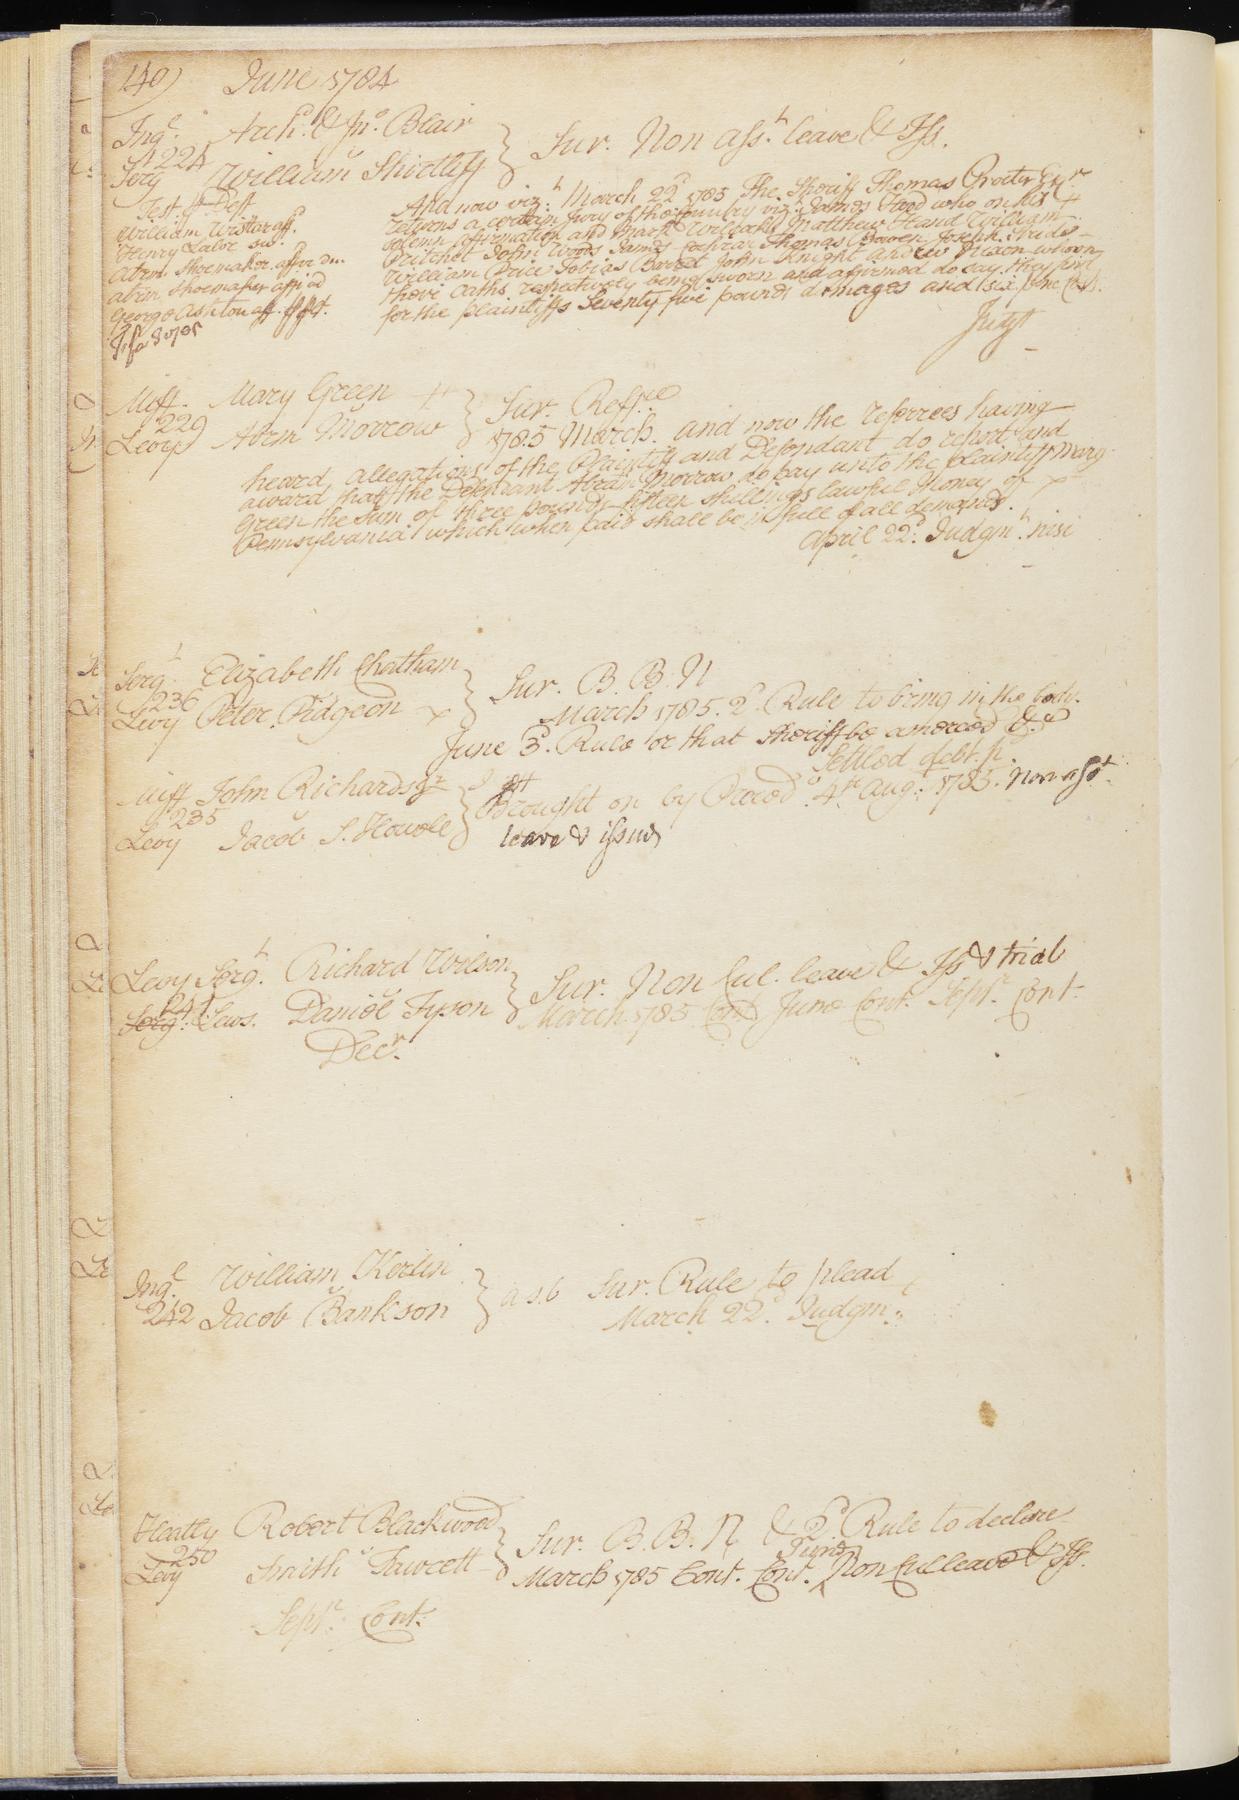 140) June 1784
Ing.l Arch.d & Jn.o Blair } Sur. Non ass.t leave & Iss.
A 224
Serg William Shirtliff
Test. pr Deft
William Wistar aff.d
Henry Lalor sw.
Abrm Shoemaker affir
abrm Shoemaker affi'd
George Ashton aff. pr plft.
And now viz.t March 22.d 1785 The Sheriff Thomas Procter Esq.r
returns a certain Jury of the country viz.t James Hood who on his +
solemn affirmation and Mark Willcocks Matthew Hand William
Pritchet John Woods James Thomas Bowen Joseph
William Price Tobias Barret John Knight Andrew Nixon whom
their oaths respectively being sworn and affirmed do say they find
for the plaintiffs Seventy five pounds damages and six pence Costs.
Judgt
Miff. Mary Green } Sur. Ref.ree
229
Levy Abrm Morrow 1785 March. and now the referrees having
heard allegations of the Plaintiff and Defendant do report and
award that the Defendant Abram Morrow do pay unto the plaintiff Mary
Green the Sum of three pounds fifteen shillings lawful Money of
Pennsylvania which when paid shall be in full of all demands.
April 22.d Judgm.t nisi
Serg.t Elizabeth Chatham } Sur. B. B. N
236
Levy Peter Pidgeon March 1785. 2.d Rule to bring in the body.
June 3.d Rule or that sheriff be amerced &c
Settled debt. p.
Miff John Richards } Brought on by Preced.o 4th Aug.t 1785. non asst
235
Levy Jacob S. Howell leave & issue
Levy Serg.t Richard Wilson } Sur. Non Cul. leave & Iss & trial
241
Serg.t Lews. Daniel Tyson March 1785 Cont June Cont. Sept.r Cont.
Decr.
Ing.l William Kerlin } a s. b Sur. Rule to plead
242 Jacob Bankson March 22.d Judgm.t
Heatly Robert Blackwood } Sur. B. B. N & 2.d Rule to declare
250 June
Levy Smith Fawcett March 1785 Cont. Cont. ^ Non Cul leave & Iss.
Sept.r Cont.